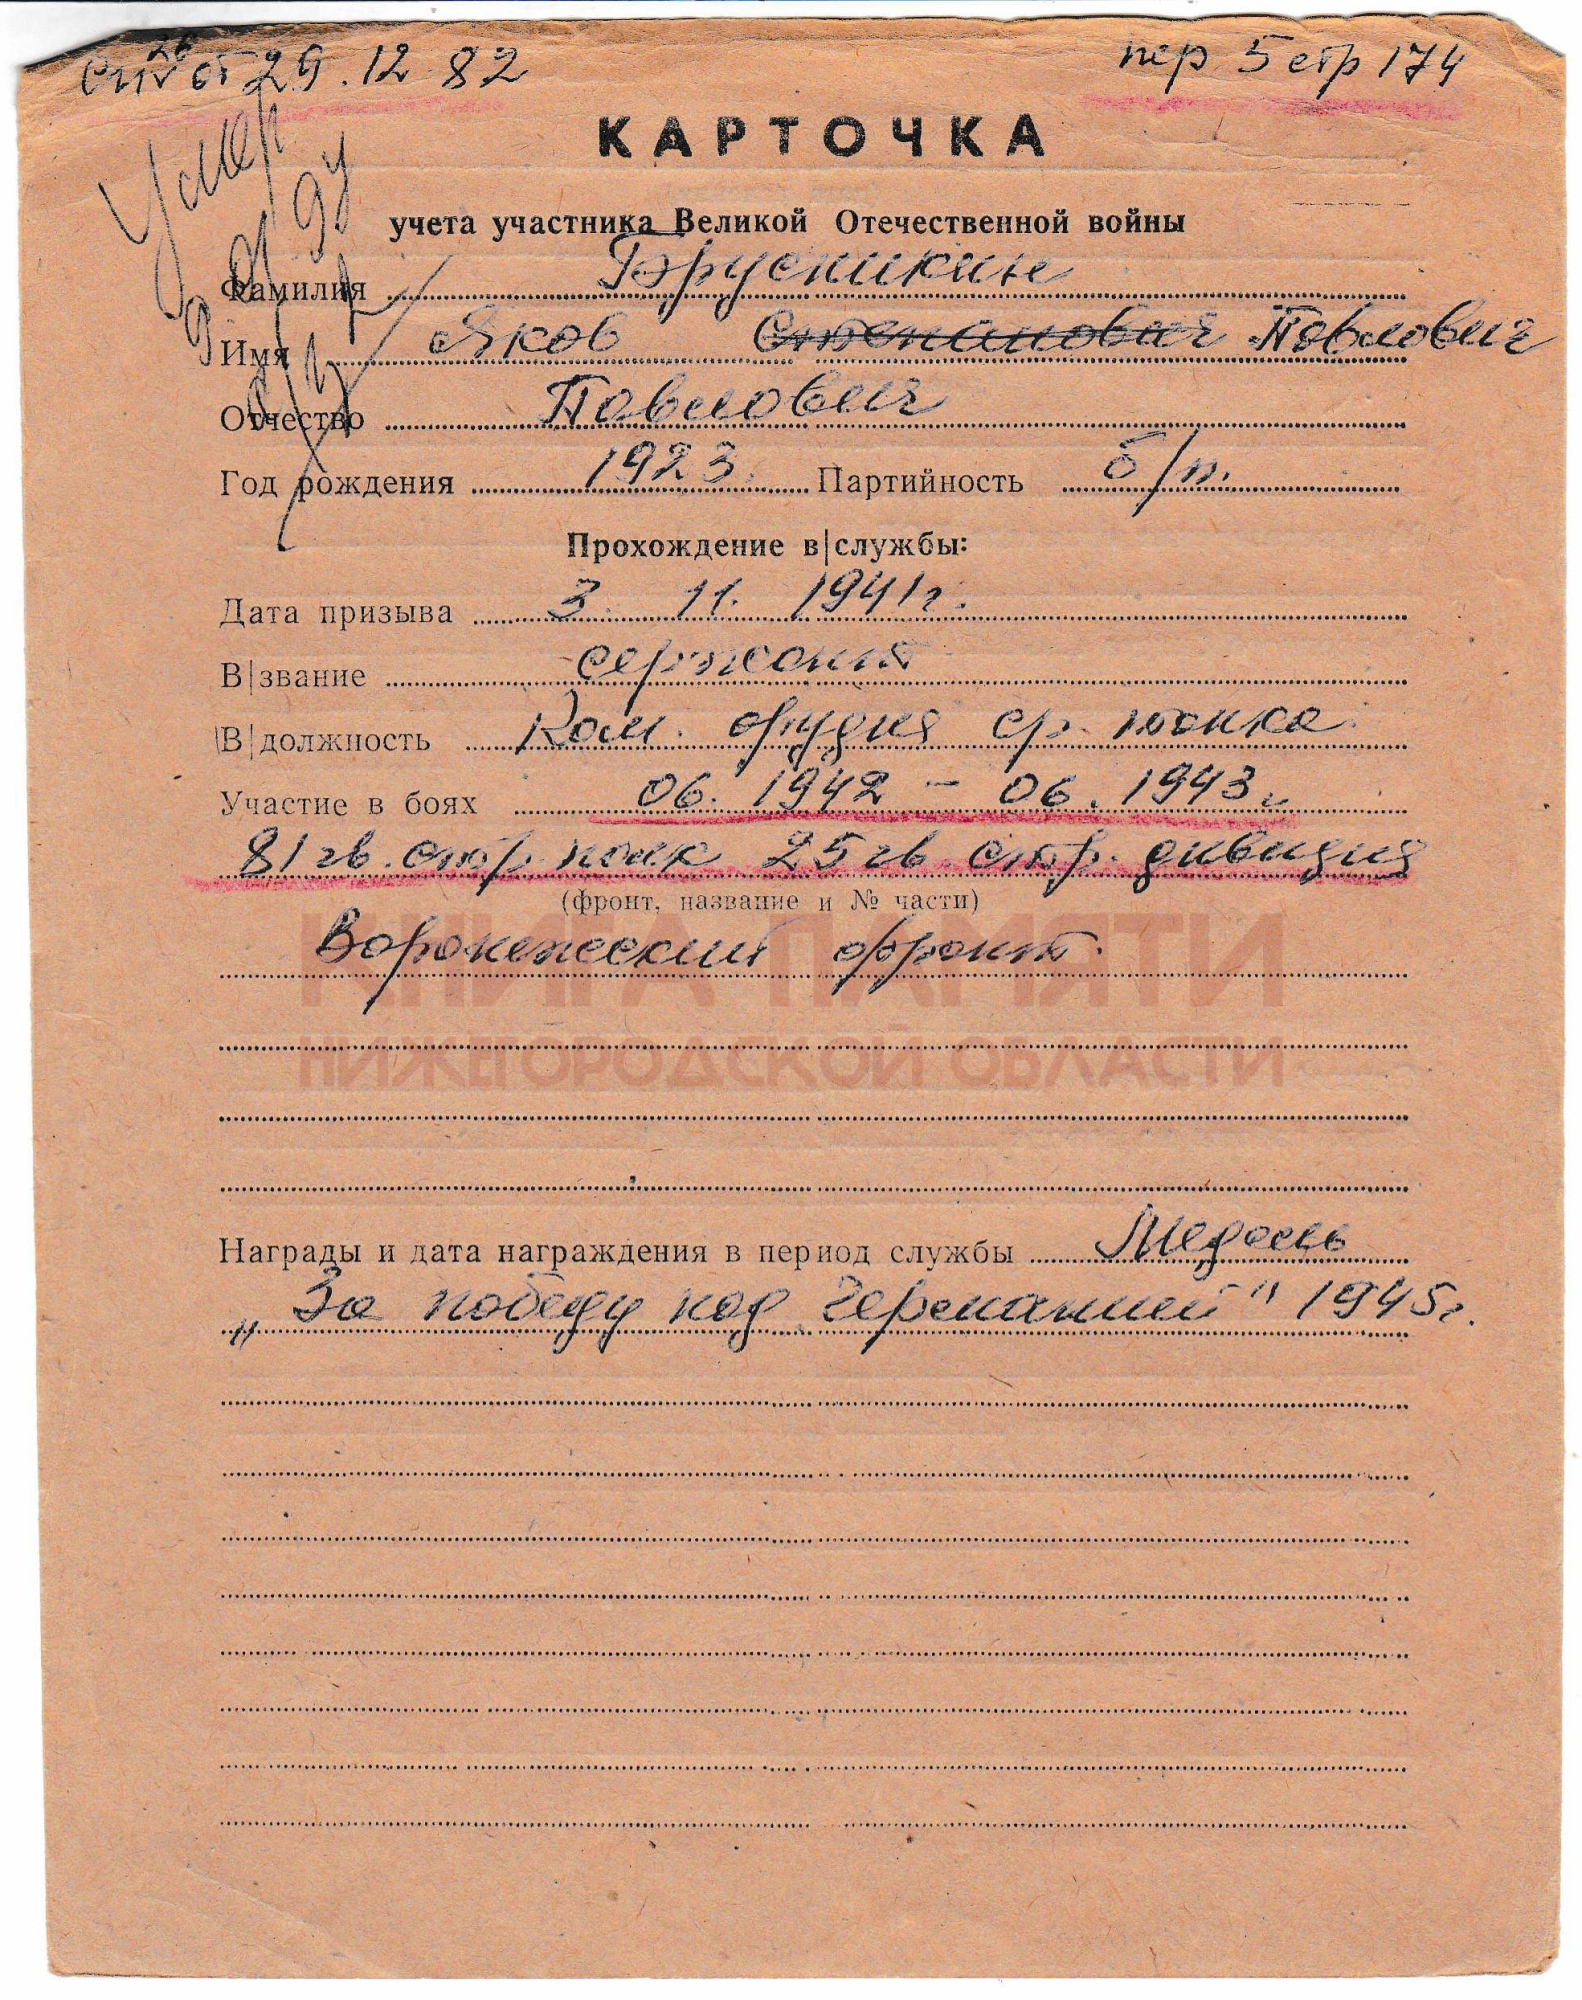 26
от 29.12 82
пер 5 стр 174
Умер
КАРТОЧКА
учета участника Великой Отечественной войны
Фамилия Брусникин
Имя Яков Степанович Павлович
Отчество Павлович
Год рождения 1923. Партийность б/п.
Прохождение в|службы:
Дата призыва 3. 11. 1941г.
В|звание сержант
В|должность Ком. орудия ср. танка
Участие в боях 06. 1942 - 06. 1943г.
81 гв. стр. полк 25 гв. стр. дивизия
(фронт, название и № части)
Воронежский фронт.
КНИГА ПАМЯТИ
НИЖЕГОРОДСКОЙ ОБЛАСТИ
Награды и дата награждения в период службы Медаль
„За победу над Германией" 1945г.